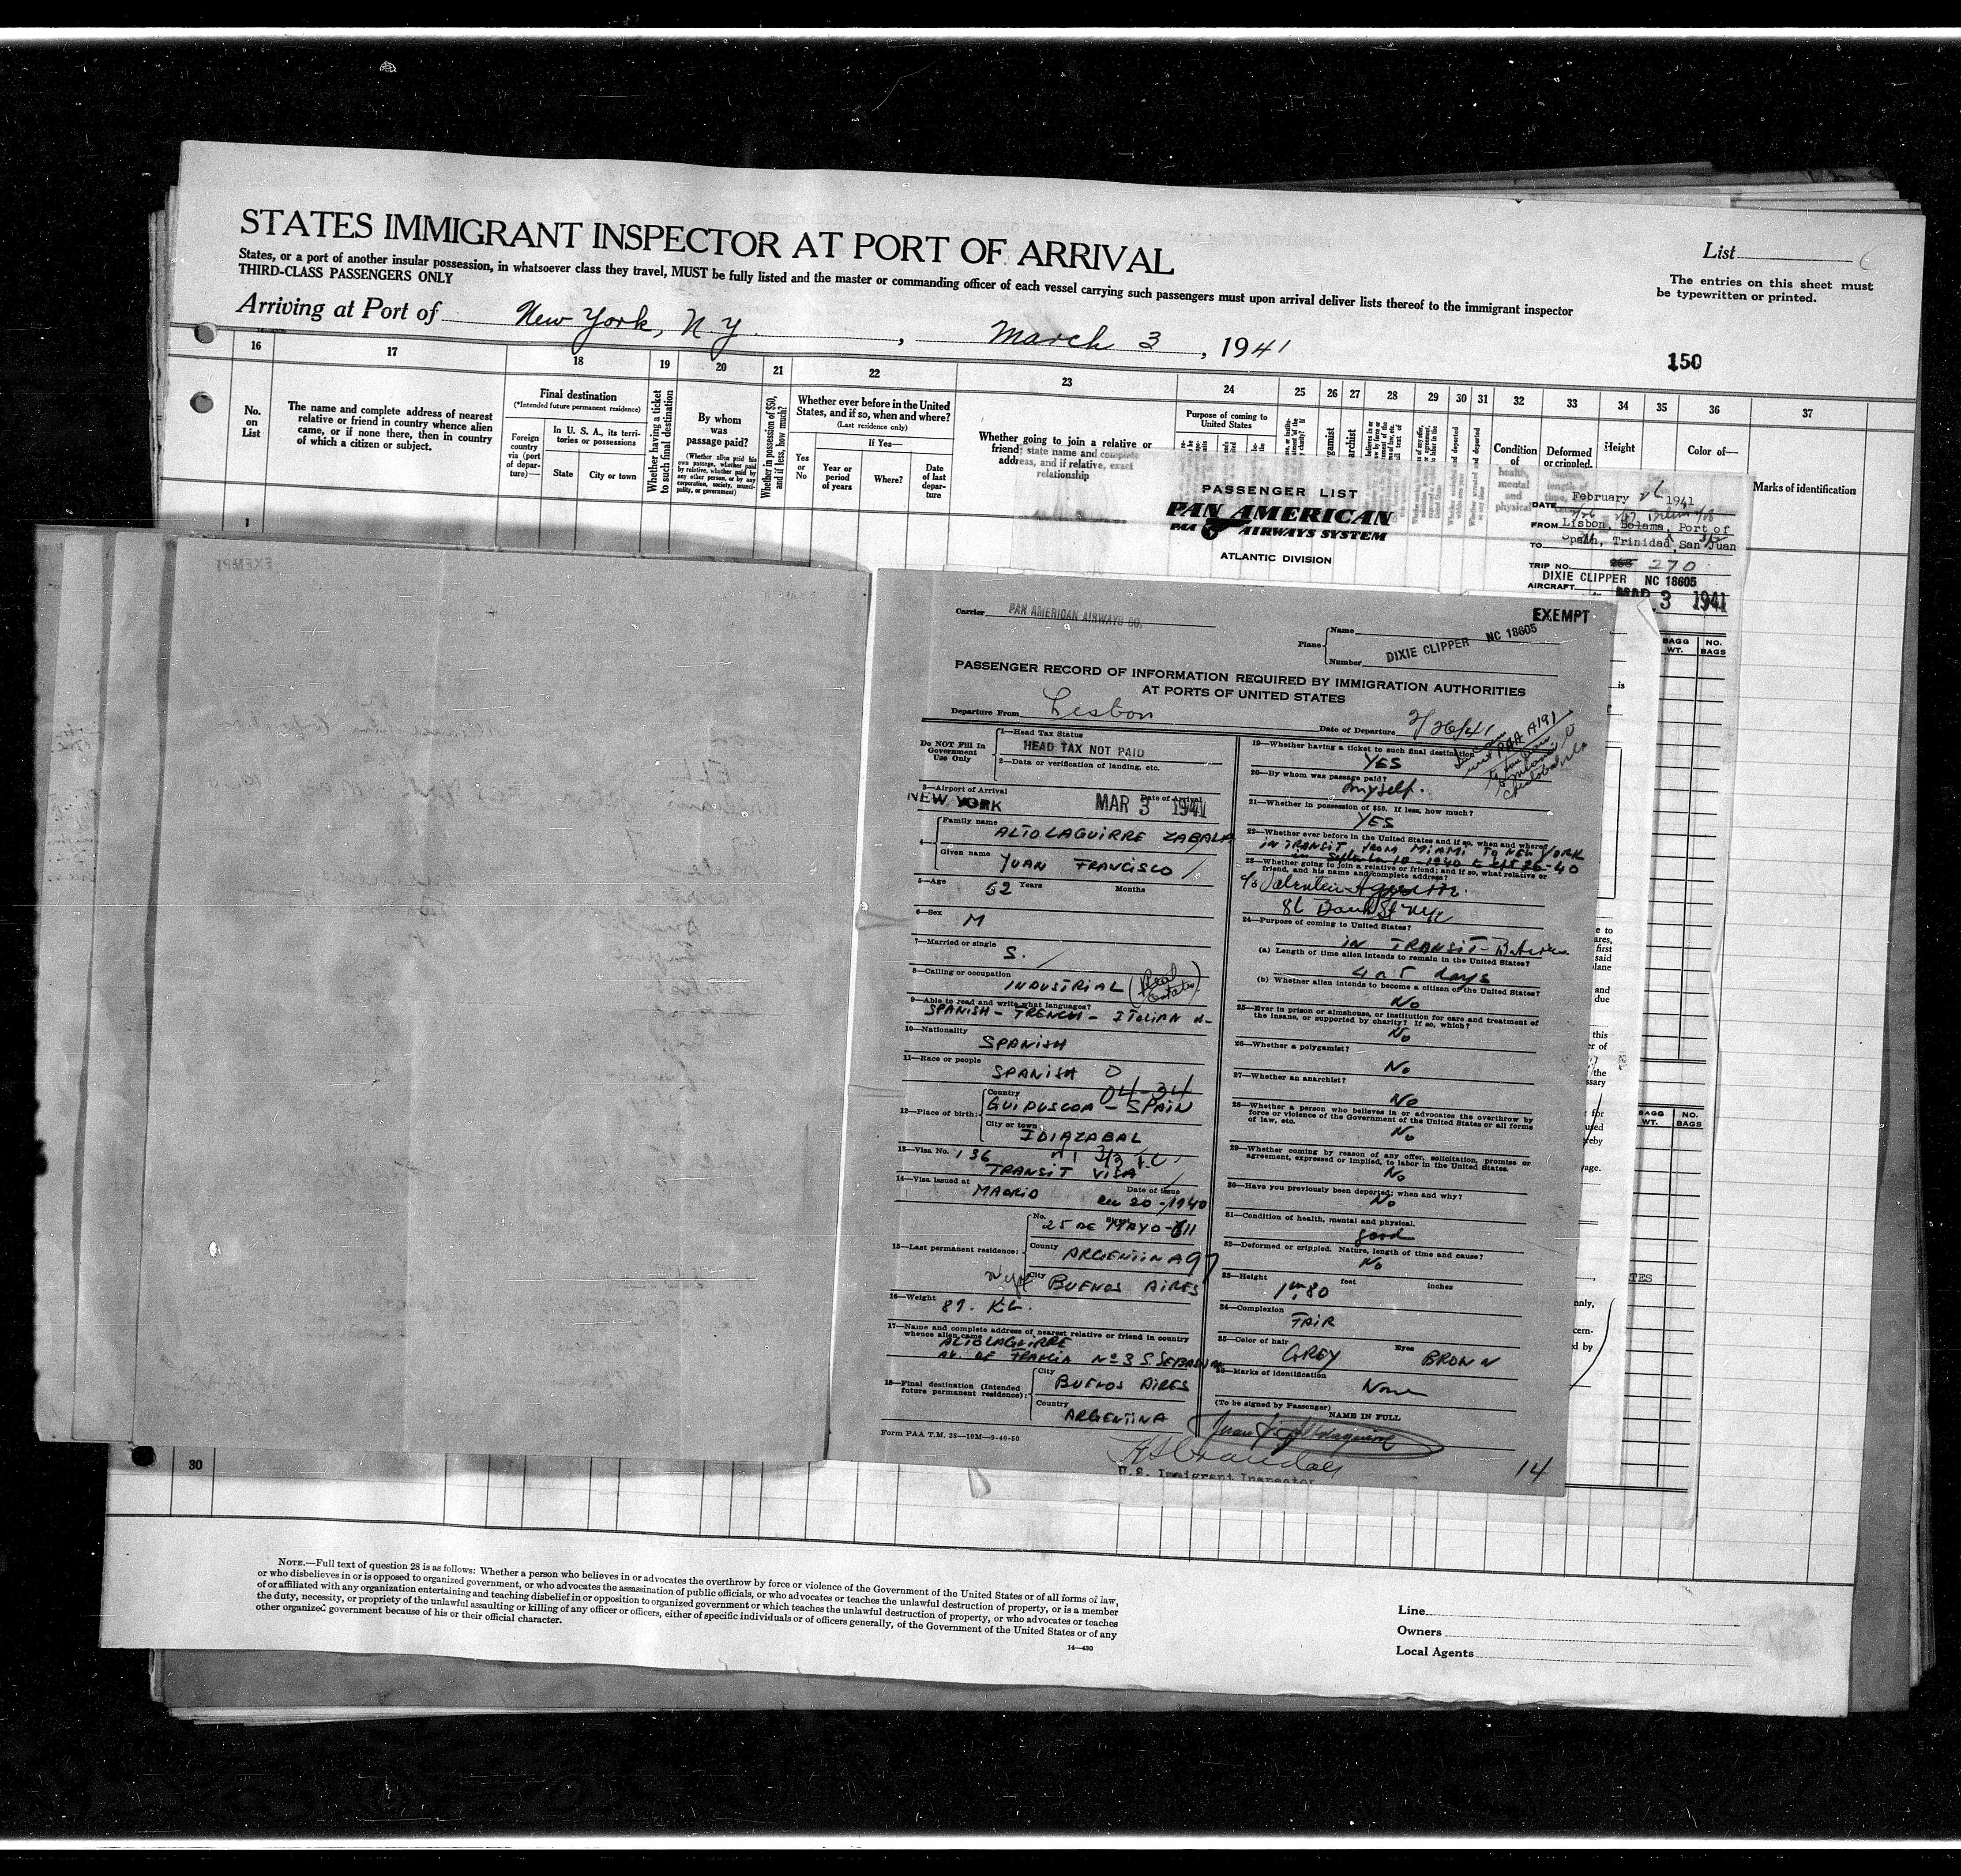 STATES IMMIGRANT INSPECTOR AT PORT OF ARRIVAL
States, or a port of another insular possession, in whatsoever class they travel, MUST be fully listed and the master or commanding officer of each vessel carrying such passengers must upon arrival deliver lists thereof to the immigrant inspector
THIRD-CLASS PASSENGERS ONLY
List
The entries on this sheet must
be typewritten or printed.
Arriving at Port of New York, N.Y. , March 3 , 1941
150
16 17 18 19 20 21 22 23 24 25 26 27 28 29 30 31 32 33 34 35 36 37
No.
on
List
The name and complete address of nearest
relative or friend in country whence alien
came, or if none there, then in country
of which a citizen or subject.
Final destination
(*Intended future permanent residence)
Foreign
country
via (port
of depar-
ture)—
In U. S. A., its terri-
tories or possessions
State
City or town
Whether having a ticket
to such final destination
By whom
was
passage paid?
(Whether alien paid his
own passage, whether paid
by relative, whether paid by
any other person, or by any
corporation, society, munici-
pality, or government)
Whether in possession of $50,
and if less, how much?
Whether ever before in the United
States, and if so, when and where?
(Last residence only)
Yes
or
No
If Yes—
Year or
period
of years
Where?
Date
of last
depar-
ture
Whether going to join a relative or
friend; state name and complete
address, and if relative, exact
relationship
Purpose of coming to
United States
Condition
of
health,
mental
and
physical
Deformed
or crippled.
Height
Color of—
Marks of identification
1
PASSENGER LIST
PAN AMERICAN
PAA AIRWAYS SYSTEM
ATLANTIC DIVISION
DATE February 26 1941
FROM Lisbon, Bolama, Port of
TO Spain, Trinidad, San Juan
TRIP NO. 270
AIRCRAFT DIXIE CLIPPER NC 18605
MAR 3 1941
BAGG
WT.
NO.
BAGS
EXEMPT
Carrier PAN AMERICAN AIRWAYS CO.
Plane
Name
Number
DIXIE CLIPPER NC 18605
PASSENGER RECORD OF INFORMATION REQUIRED BY IMMIGRATION AUTHORITIES
AT PORTS OF UNITED STATES
Departure From Lisbon
Date of Departure 2/26/41
Do NOT Fill In
Government
Use Only
1—Head Tax Status
HEAD TAX NOT PAID
2—Data or verification of landing, etc.
3—Airport of Arrival
Date of Arrival
NEW YORK MAR 3 1941
4—
Family name ALTOLAGUIRRE ZABALA
Given name YUAN FRANCISCO
5—Age 52 Years Months
6—Sex M
7—Married or single
S.
8—Calling or occupation
INDUSTRIAL (Real Estate)
9—Able to read and write what languages?
SPANISH - FRENCH - ITALIAN
10—Nationality
SPANISH
11—Race or people
SPANISH
12—Place of birth:
Country
GUIPUSCOA - SPAIN
City or town
IDIAZABAL
13—Visa No. 136
TRANSIT VISA
14—Visa issued at
MADRID
Date of issue
20-1940
15—Last permanent residence:
No.
25 DE MAYO - 611
County ARGENTINA
City BUENOS AIRES
16—Weight
87. KL.
17—Name and complete address of nearest relative or friend in country
whence alien came
ALTOLAGUIRRE
AV. DE FRANCIA Nº 3 S. SEBASTIAN
18—Final destination (Intended
future permanent residence):
City
BUENOS AIRES
Country
ARGENTINA
Form PAA T.M. 28—10M—9-40-50
19—Whether having a ticket to such final destination
YES
20—By whom was passage paid?
myself.
21—Whether in possession of $50. If less, how much?
YES
22—Whether ever before in the United States and if so, when and where?
IN TRANSIT FROM MIAMI TO NEW YORK
23—Whether going to join a relative or friend; and if so, what relative or
friend, and his name and complete address?
c/o Valentin Aguirre
86 Bank St NYC
24—Purpose of coming to United States?
IN TRANSIT
(a) Length of time alien intends to remain in the United States?
4 or 5 days
(b) Whether alien intends to become a citizen of the United States?
No
25—Ever in prison or almshouse, or institution for care and treatment of
the insane, or supported by charity? If so, which?
No
26—Whether a polygamist?
No
27—Whether an anarchist?
No
28—Whether a person who believes in or advocates the overthrow by
force or violence of the Government of the United States or all forms
of law, etc.
No
29—Whether coming by reason of any offer, solicitation, promise or
agreement, expressed or implied, to labor in the United States.
No
30—Have you previously been deported; when and why?
No
31—Condition of health, mental and physical.
good
32—Deformed or crippled. Nature, length of time and cause?
No
33—Height feet inches
1m 80
34—Complexion
FAIR
35—Color of hair Eyes
GREY BROWN
36—Marks of identification
None
(To be signed by Passenger)
NAME IN FULL
U.S. Immigrant Inspector
14
30
NOTE.—Full text of question 28 is as follows: Whether a person who believes in or advocates the overthrow by force or violence of the Government of the United States or of all forms of law,
or who disbelieves in or is opposed to organized government, or who advocates the assassination of public officials, or who advocates or teaches the unlawful destruction of property, or is a member
of or affiliated with any organization entertaining and teaching disbelief in or opposition to organized government or which teaches the unlawful destruction of property, or who advocates or teaches
the duty, necessity, or propriety of the unlawful assaulting or killing of any officer or officers, either of specific individuals or of officers generally, of the Government of the United States or of any
other organized government because of his or their official character.
14—430
Line
Owners
Local Agents